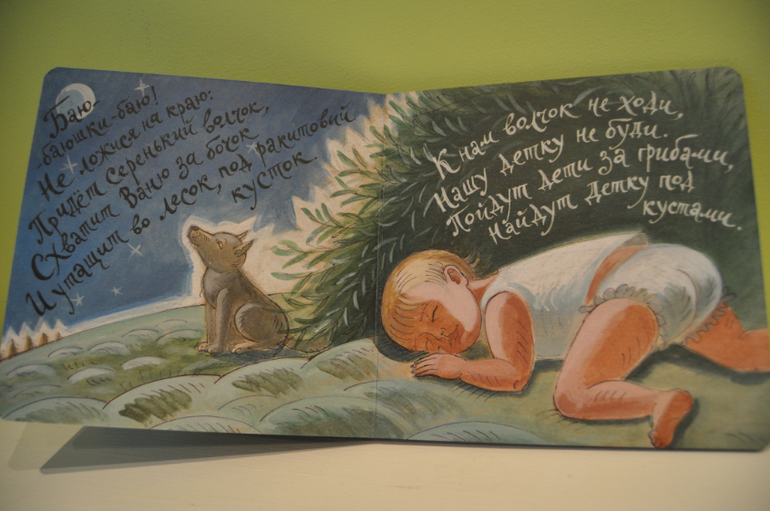 Баю-
-баюшки-баю!
Не ложися на краю:
Придёт серенький волчок,
Схватит Ваню за бочок
И утащит во лесок, под ракитовый
кусток.
К нам волчок не ходи,
Нашу детку не буди.
Пойдут дети за грибами,
Найдут детку под
кустами.